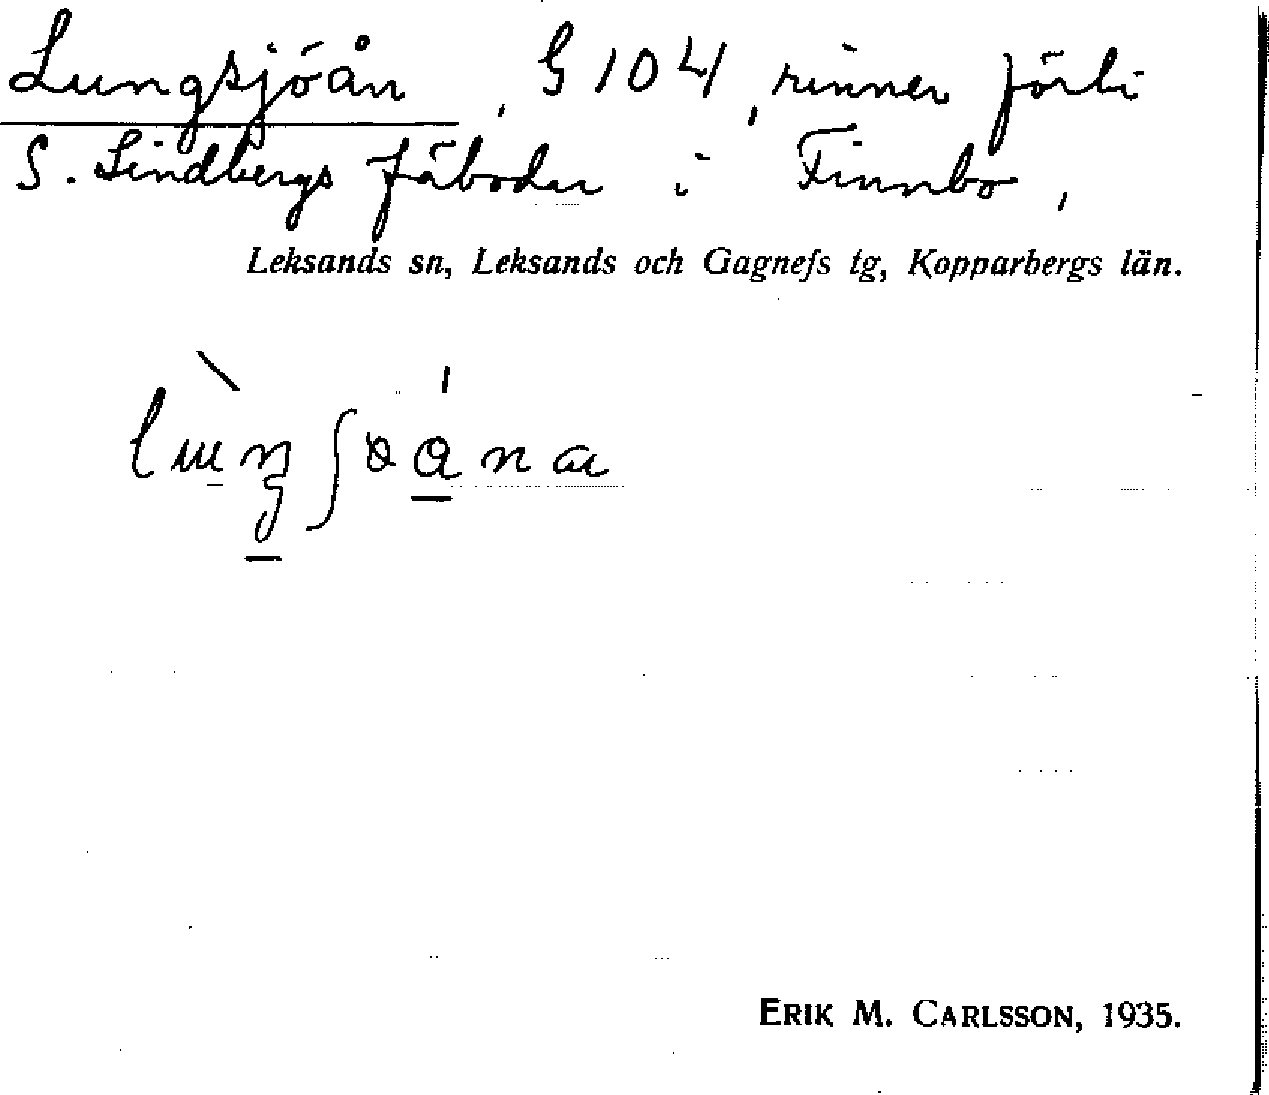 Lungsjöån, G 104, rinner förbi
S. Lindbergs fäbodar i Finnbo,
Leksands sn, Leksands och Gagnefs tg, Kopparbergs län.
ERIK M. CARLSSON, 1935.